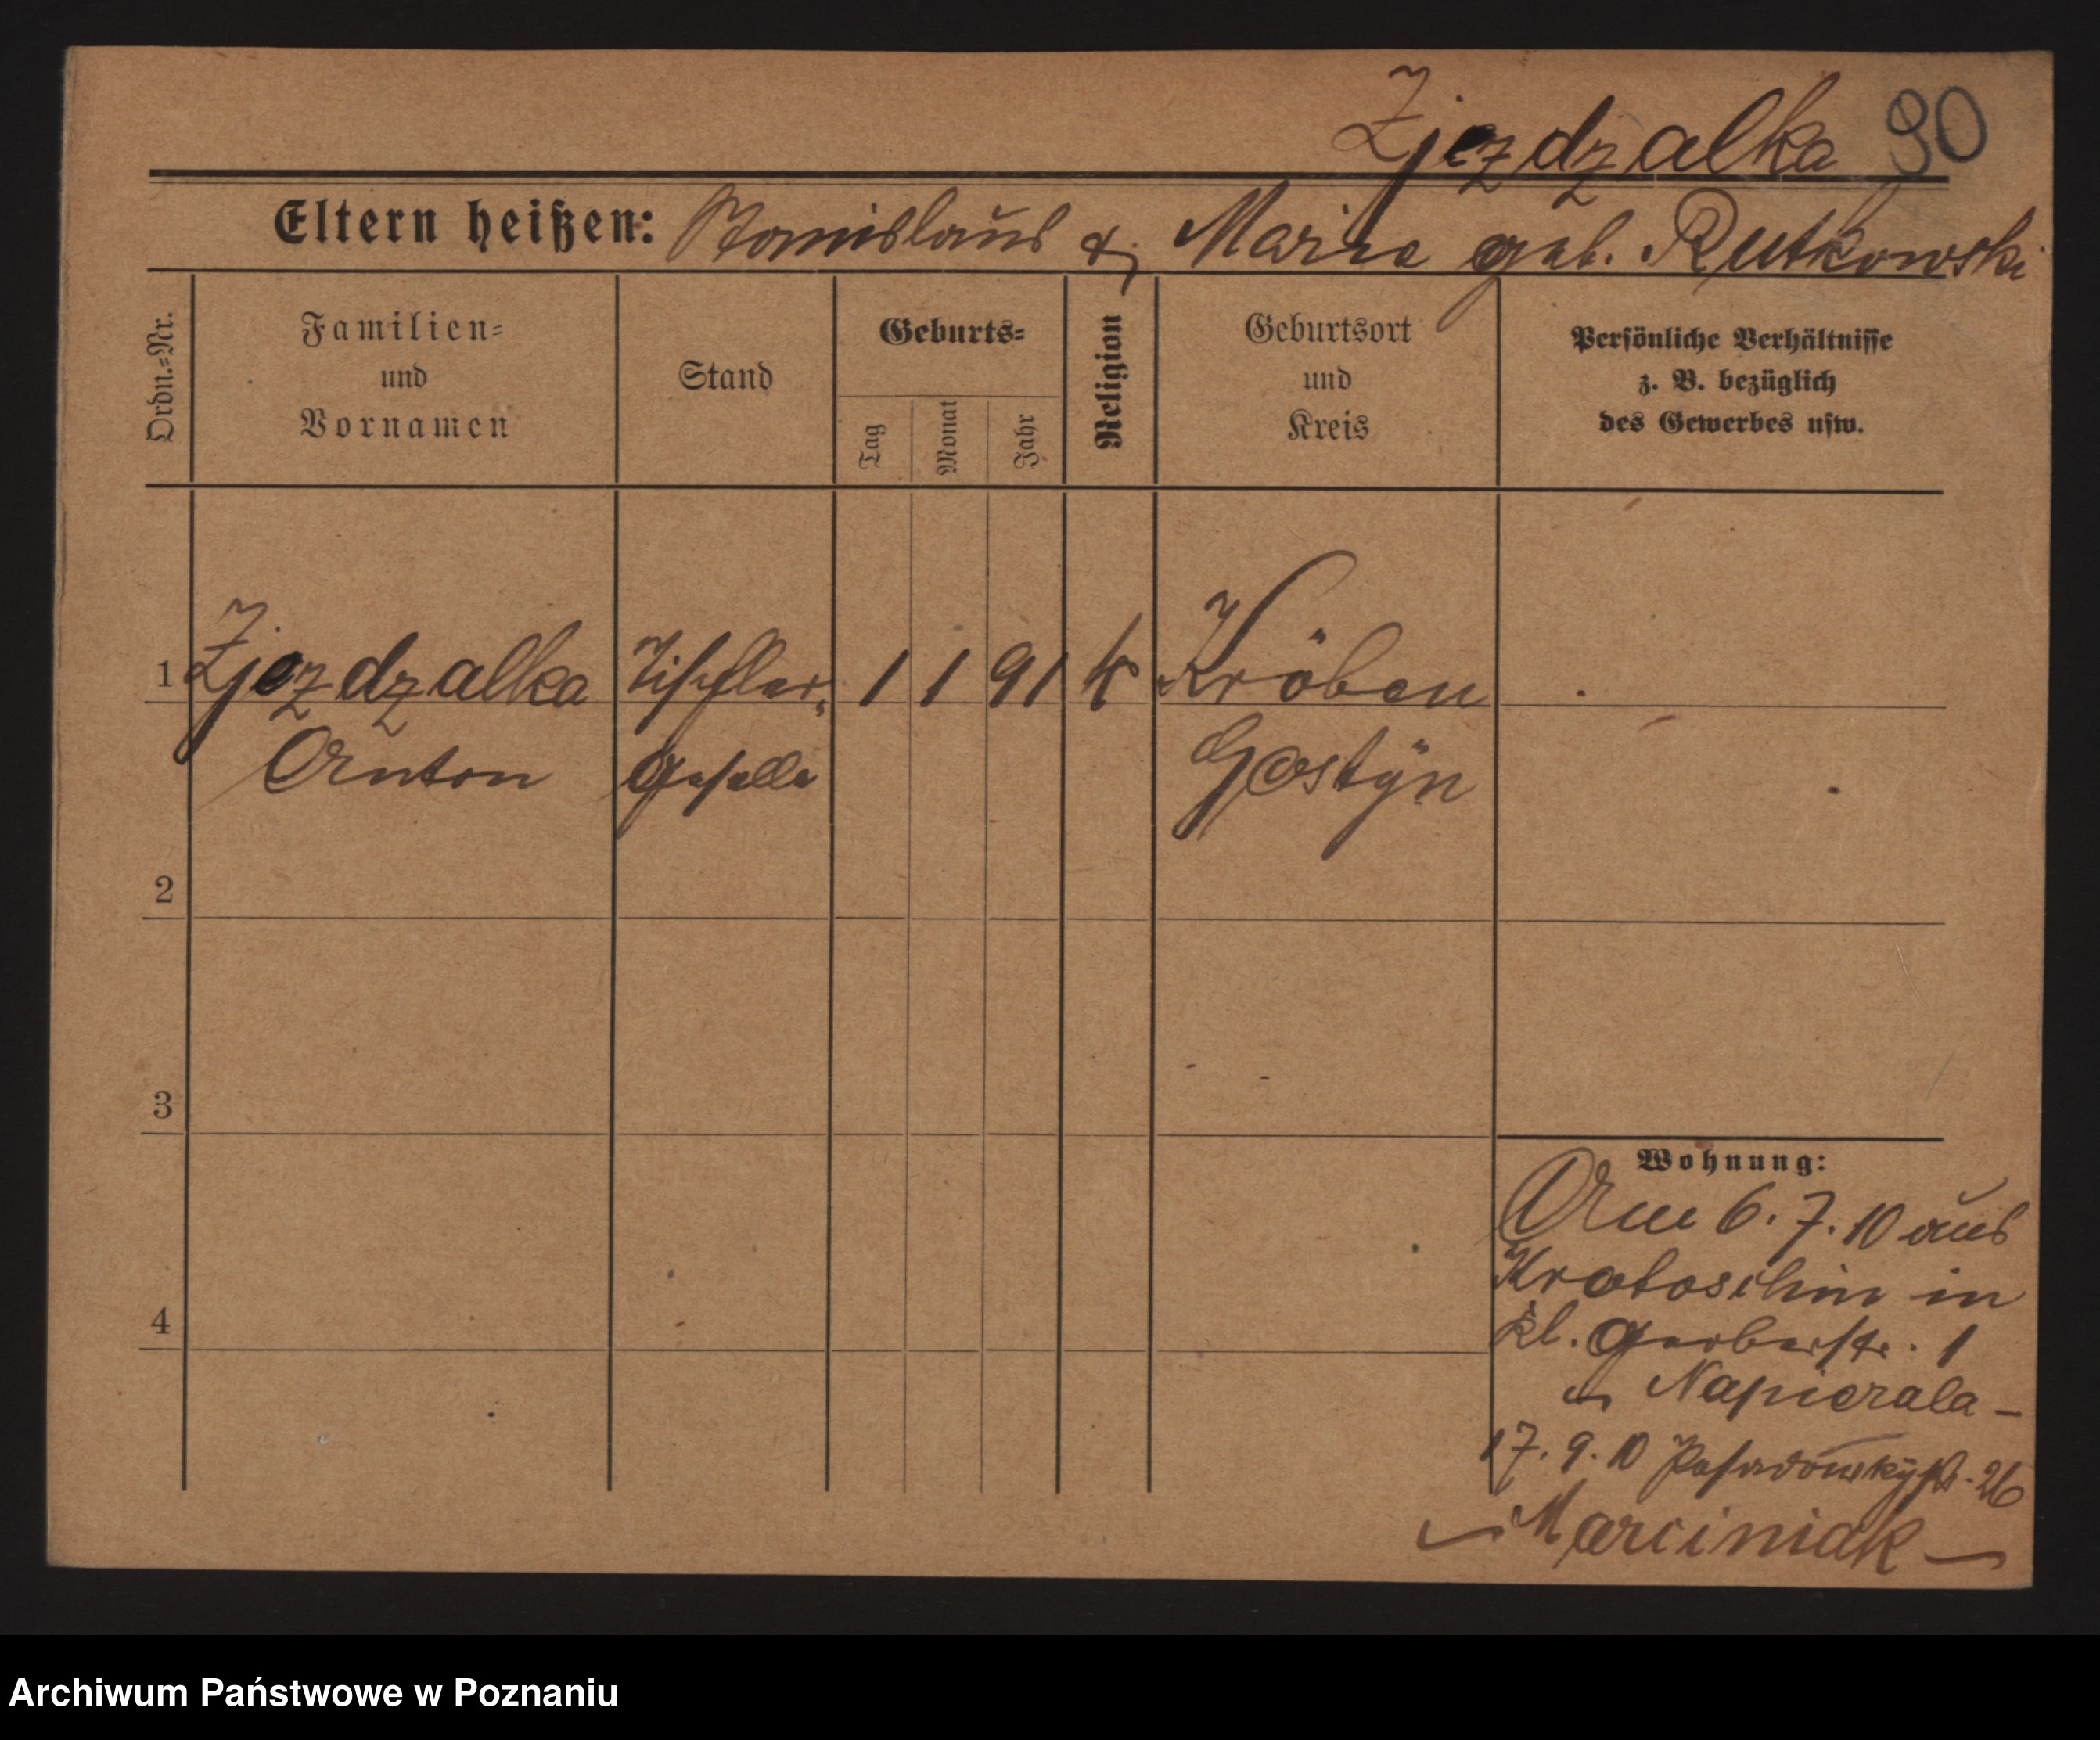 Zjezdzalka 90
Eltern heißen: Stanislaus & Marie geb. Rutkowski
Ordn.=Nr.
Familien=
und
Vornamen
Stand
Geburts=
Tag
Monat
Jahr
Religion
Geburtsort
und
Kreis
Persönliche Verhältnisse
z. B. bezüglich
des Gewerbes usw.
1 Zjezdzalka Tischler- 1 1 91 k Kröben
Anton Geselle Gostÿn
2
3
4
Wohnung:
Am 6. 7. 10 aus
Krotoschin in
kl. Gerberstr. 1
Napierala –
17. 9. 10 Posadowskÿstr. 26
– Marciniak –
Archiwum Państwowe w Poznaniu